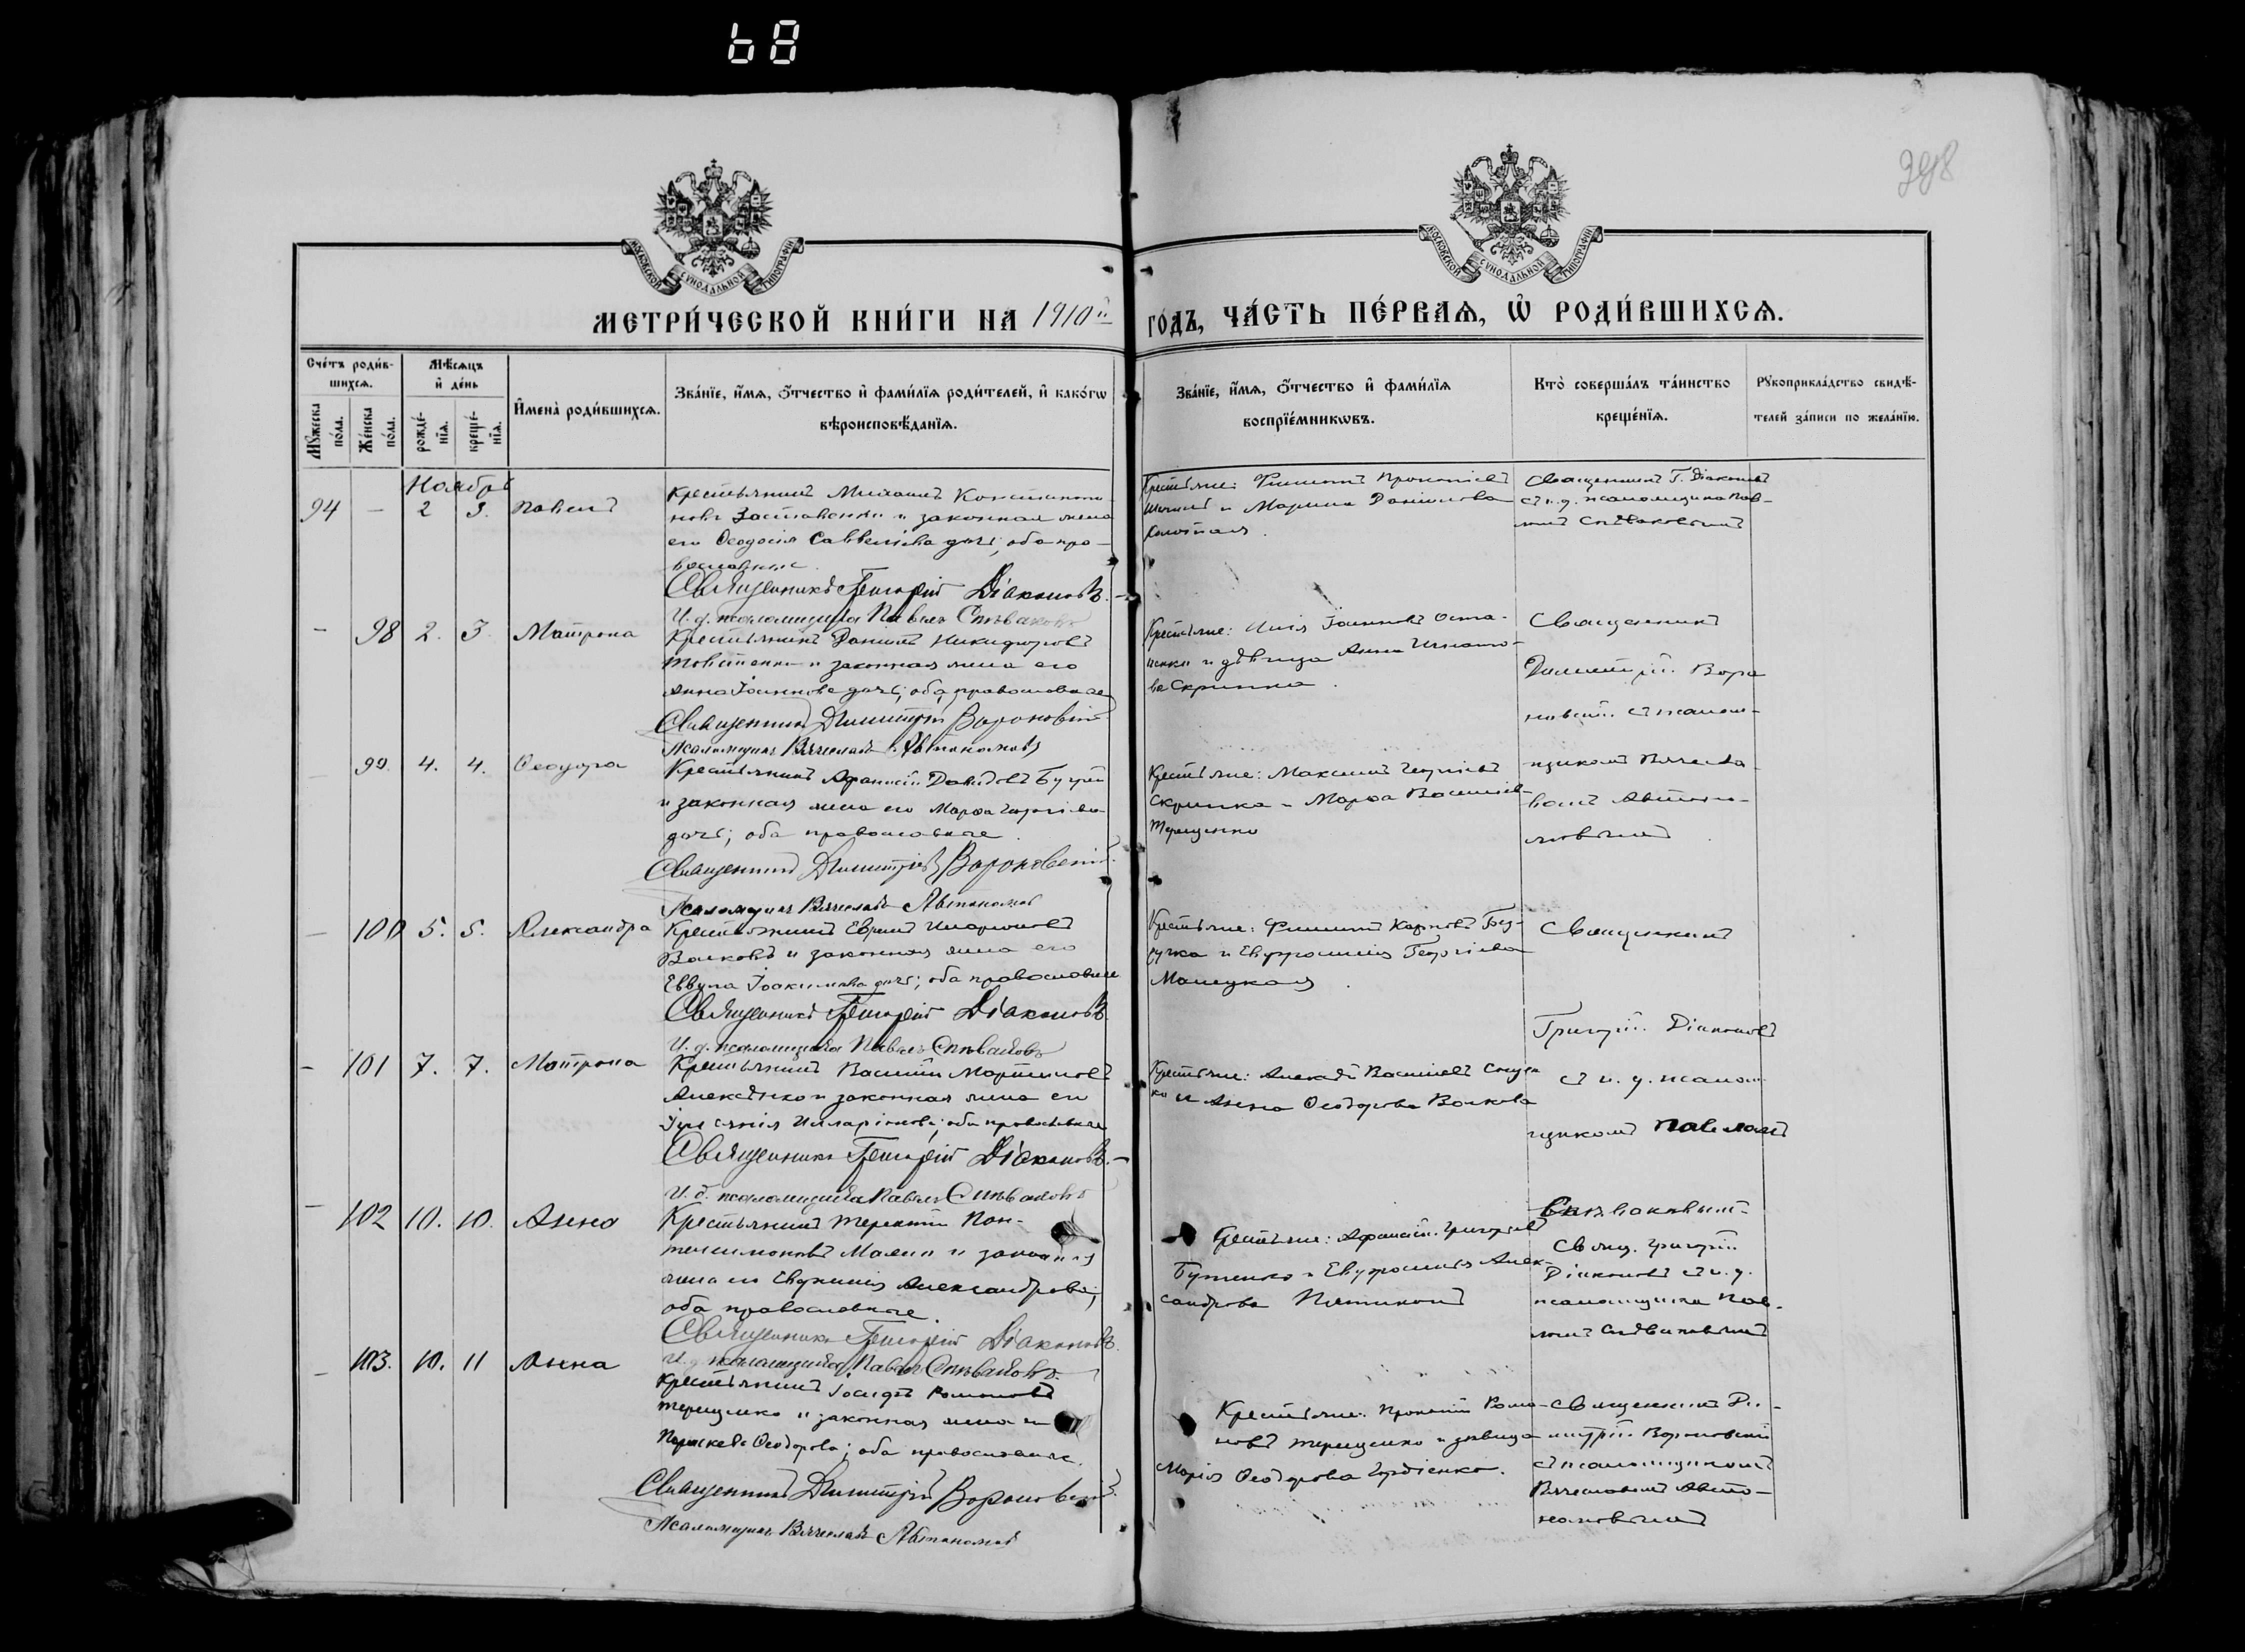 68
298
МОСКОВСКОЙ СУНОДАЛЬНОЙ ТИПОГРАФІИ
МОСКОВСКОЙ СУНОДАЛЬНОЙ ТИПОГРАФІИ
МЕТРИ́ЧЕСКОЙ КНИ́ГИ НА 1910й
ГО́ДЪ, ЧА́СТЬ ПЕ́РВАѦ, Ѡ҆ РОДИ́ВШИХСѦ.
Сче́тъ роди́в-
шихсѧ.
Мꙋжеска по́ла.
Же́нска по́ла.
Мѣ́сѧцъ и҆ де́нь
рожде́-
нїѧ.
креще́-
нїѧ.
И҆мена̀ роди́вшихсѧ.
Зва́нїе, и҆́мѧ, ѻ҆́тчество и҆ фами́лїѧ роди́телей, и҆ како́гѡ
вѣроисповѣ́данїѧ.
Зва́нїе, и҆́мѧ, ѻ҆́тчество и҆ фами́лїѧ
воспрїе́мникѡвъ.
Кто̀ соверша́лъ та́инство
креще́нїѧ.
Рꙋкоприкла́дство свидѣ́-
телей за́писи по жела́нїю.
Ноябрь
94 — 2 3. Павелъ
Крестьянинъ Михаилъ Константи-
новъ Заставенко и законная жена
его Ѳеодосія Савельева дочь; оба пра-
вославные.
Священникъ Григорій Діаконовъ.
И. д. псаломщика Павелъ Спѣваковъ
Крестьяне: Филиппъ Прокопіевъ
и Марина Даніилова
Священникъ Г. Діаконовъ
съ и. д. псаломщика Пав-
ломъ Спѣваковымъ
— 98 2. 3. Матрона
Крестьянинъ Даніилъ Никифоровъ
Товстенко и законная жена его
Анна Іоаннова дочь; оба православные
Священникъ Димитрій Вороновскій
Псаломщикъ Вячеславъ Автономовъ
Крестьяне: Илія Іоанновъ Оста-
пенко и дѣвица Анна Игнато-
ва Скрипка.
Священникъ
Димитрій Воро
новскій съ псалом-
щикомъ Вячесла-
вомъ Автоно-
мовымъ
— 99. 4. 4. Ѳеодора
Крестьянинъ Афанасій Давидовъ
и законная жена его Марѳа Георгіева
дочь; оба православные.
Священникъ Димитрій Вороновскій.
Псаломщикъ Вячеславъ Автономовъ
Крестьяне: Максимъ Георгіевъ
Скрипка и Марѳа Василіев-
Терещенко
— 100 5. 5. Александра
Крестьянинъ Ефремъ Иларіоновъ
Волковъ и законная жена его
Еввула Іоакимова дочь; оба православные
Священникъ Григорій Діаконовъ
И. д. псаломщика Павелъ Спѣваковъ
Крестьяне: Филиппъ Карповъ
и Евфросинія Георгіева
Священникъ
Григорій Діаконовъ
съ и. д. псалом-
щикомъ Павломъ
Спѣваковымъ
— 101 7. 7. Матрона
Крестьянинъ Василій Мартиновъ
Алексѣнко и законная жена его
Іуліанія Илларіонова; оба православные
Священникъ Григорій Діаконовъ.
И. д. псаломщика Павелъ Спѣваковъ
Крестьяне: Алексѣй Василіевъ
и Анна Ѳеодорова Волкова
— 102 10. 10. Анна
Крестьянинъ Терентій Пан-
телеимоновъ и законная
жена его Евфимія Александрова;
оба православные.
Священникъ Григорій Діаконовъ.
И. д. псаломщика Павелъ Спѣваковъ.
Крестьяне: Афанасій Григорьевъ
Бутенко и Евфросинія Алек-
сандрова
Свящ. Григорій
Діаконовъ съ и. д.
псаломщика Пав-
ломъ Спѣваковымъ
— 103. 10. 11 Анна
Крестьянинъ Іосифъ Романовъ
Терещенко и законная жена его
Параскева Ѳеодорова; оба православные.
Священникъ Димитрій Вороновскій.
Псаломщикъ Вячеславъ Автономовъ
Крестьяне: Прокопій Рома-
новъ Терещенко и дѣвица
Марія Ѳеодорова Гордіенко.
Священникъ Ди-
митрій Вороновскій
съ псаломщикомъ
Вячеславомъ Авто-
номовымъ